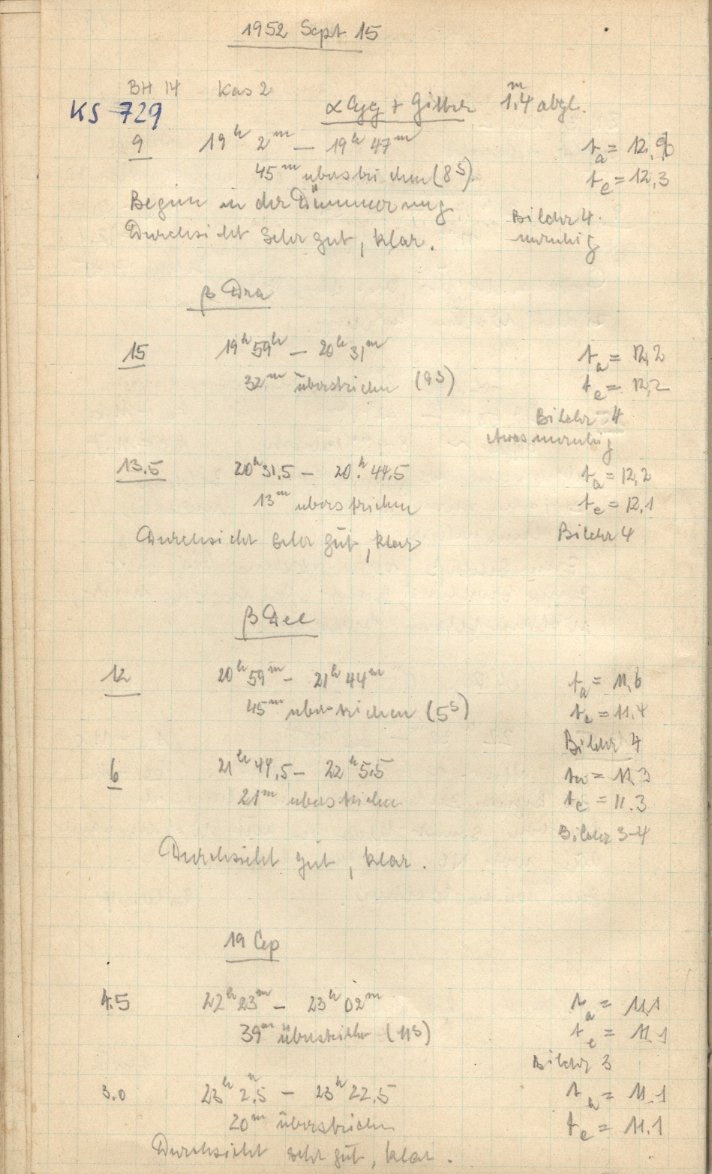 1952 Sept 15
BH 14 Kas 2
α Cyg + Gitter 1ᵐ,4 abgl.
KS 729
9 19ʰ 2ᵐ — 19ʰ 47ᵐ tₐ = 12,
45ᵐ überstrichen (8ˢ) tₑ = 12,3
Beginn in der Dämmerung Bilder 4
Durchsicht sehr gut, klar. unruhig
β Dra
15 19ʰ 59ʰ — 20ʰ 31ᵐ tₐ = 12,2
32ᵐ überstrichen (9ˢ) tₑ = 12,2
Bilder 4
etwas unruhig
13,5 20ʰ 31,5 — 20ʰ 44,5 tₐ = 12,2
13ᵐ überstrichen tₑ = 12,1
Durchsicht sehr gut, klar Bilder 4
β Del
12 20ʰ 59ᵐ — 21ʰ 44ᵐ tₐ = 11,6
45ᵐ überstrichen (5ˢ) tₑ = 11,4
Bilder 4
6 21ʰ 44,5 — 22ʰ 5,5 tₐ = 11,3
21ᵐ überstrichen tₑ = 11.3
Bilder 3-4
Durchsicht gut, klar.
19 Cep
4.5 22ʰ 23ᵐ — 23ʰ 02ᵐ tₐ = 11,1
39ᵐ überstrichen (11ˢ) tₑ = 11.1
Bilder 3
3.0 23ʰ 2,5 — 23ʰ 22,5 tₐ = 11.1
20ᵐ überstrichen tₑ = 11.1
Durchsicht sehr gut, klar.